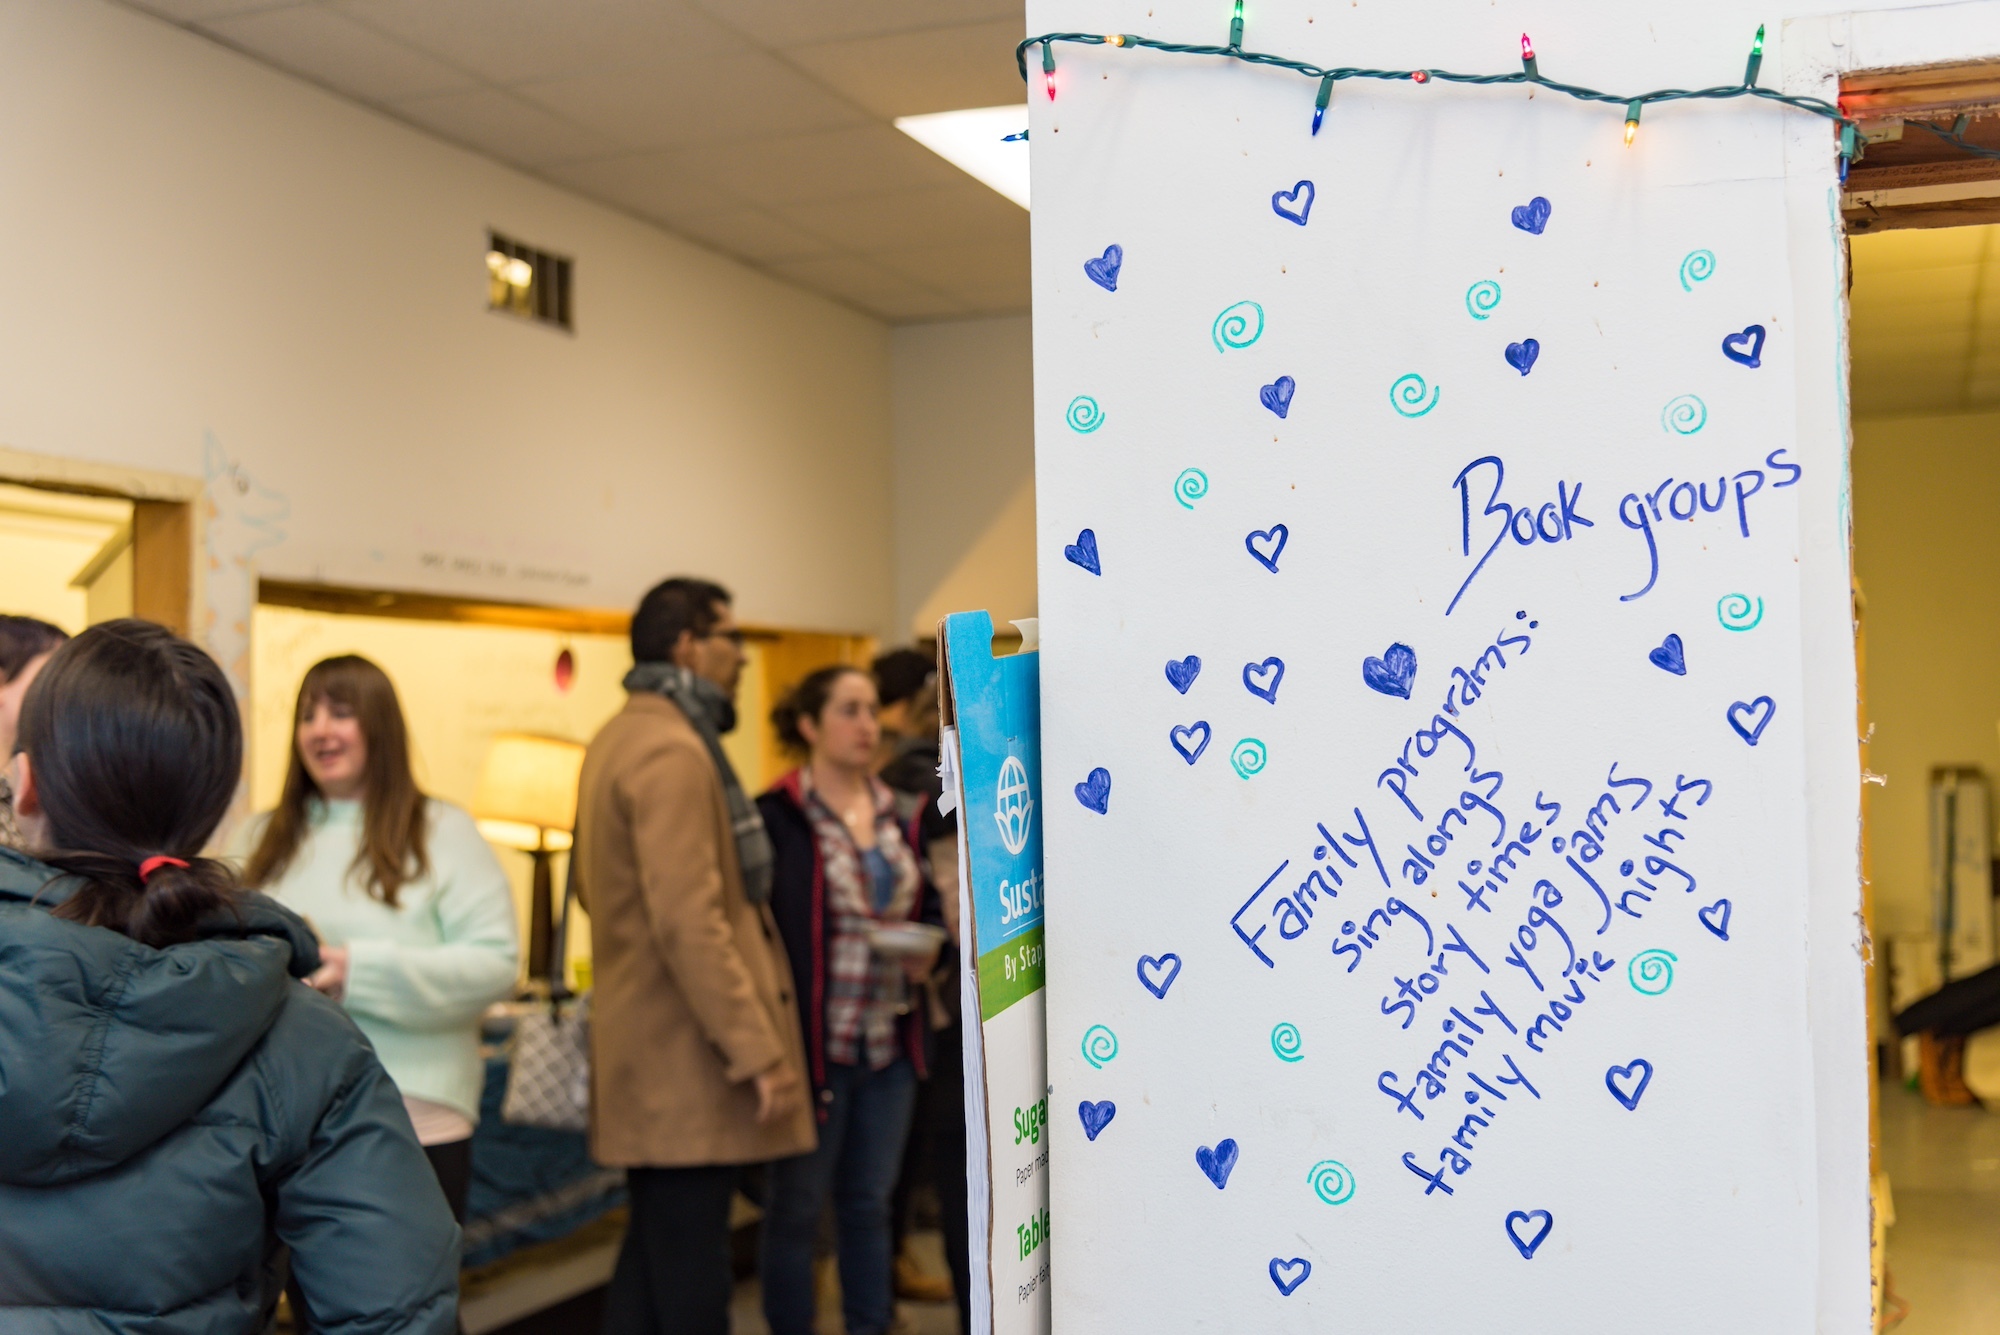 Book groups
Family programs:
sing alongs
story times
family yoga jams
family movie nights
Susta
By Stap
Suga
Paper mad
Table
Papier fait